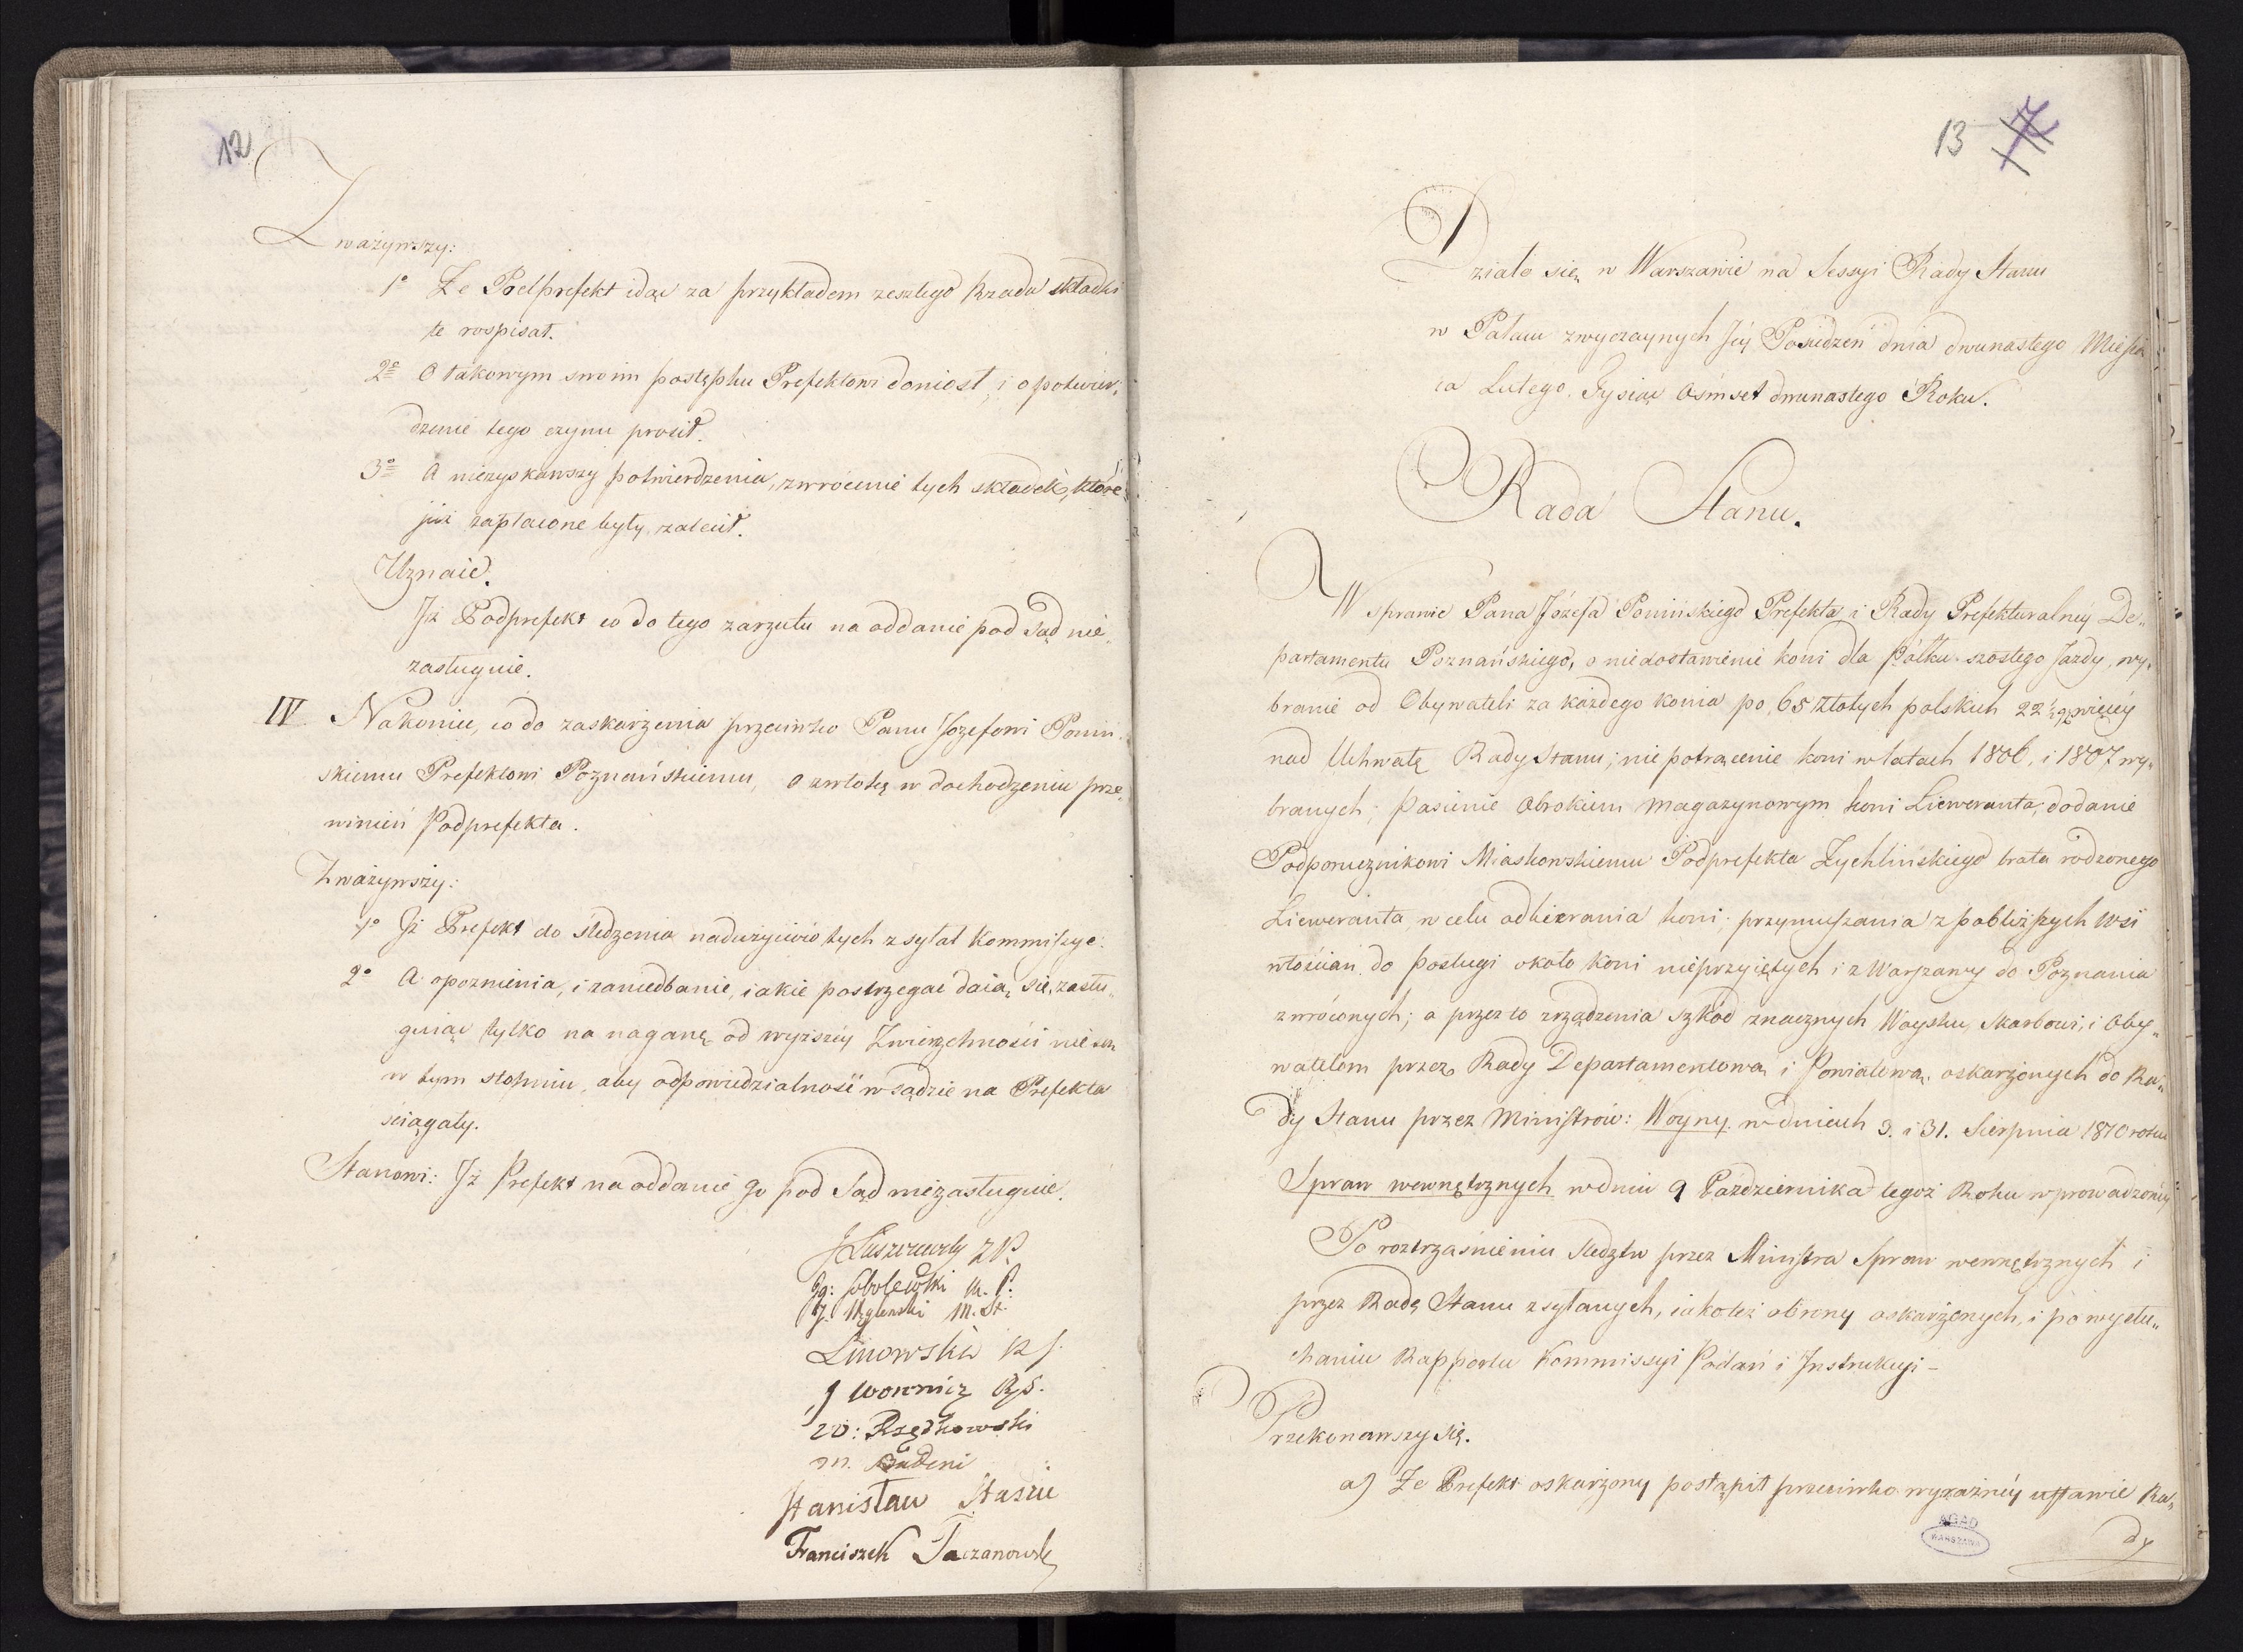 12
Zważywszy:
1º Ze Podprefekt idąc za przykładem zeszłego Rządu składki
te rospisał.
2º O takowym swoim postępku Prefektowi doniosł, i o potwier„
dzenie tego czynu prosił.
3º A nieżyskawszy potwierdzenia, zwrócenie tych składek, które
już zapłacone były, zalecił.
Uznaie.
Jż Podprefekt co do tego zarzutu na oddanie pod Sąd nie„
zasługuie.
IV. Nakoniec, co do zaskarżenia przeciwko Panu Jozefowi Poniń„
skiemu Prefektowi Poznańskiemu, o zwłokę w dochodzeniu prze„
winień Podprefekta.
Zważywszy:
1º Jż Prefekt do śledzenia nadużyciów tych zsyłał Kommissye.
2º A opoznienia, i zaniedbanie, iakie postrzegać daią się, zasłu„
guiąc tylko na naganę od wyższéy Zwierzchności nie są
w tym stopniu, aby odpowiedzialność w sądzie na Prefekta
ściągały.
Stanowi: Jż Prefekt na oddanie go pod Sąd niezasługuie.
J Łuszczewsky ZP.
Ig: Sobolewski M. P.
J. Węglenski M. St.
Linowski RS.
J Woronicz RS.
W: Rzędkowski
M. Badeni
Stanisław Staszic
Franciszek Taczanowski
13
Działo się w Warszawie na Sessyi Rady Stanu
w Pałacu zwyczaynych Jéy Posiedzeń dnia dwunastego Miesią
ca Lutego, Tysiąc Osmset dwunastego Roku.
Rada Stanu.
W sprawie Pana Józefa Ponińskiego Prefekta i Rady Prefekturalnéy De„
partamentu Poznańskiego, o niedostawienie koni dla Półku szostego Jazdy, wy„
branie od Obywateli za każdego konia po 65 złotych polskich 22½ gr więcéy
nad Uchwałę Rady Stanu; nie potrącenie koni w latach 1806, i 1807 wy„
branych; pasienie Obrokiem magazynowym koni Liweranta; dodanie
Podporucznikowi Miaskowskiemu Podprefekta Zychlińskiego brata rodzonego
Liweranta, w celu odbierania koni; przymuszania z pobliższych Wsi
włościan do posługi około koni nieprzyiętych i z Warszawy do Poznania
zwróconych; a przez to zrządzenia szkód znacznych Woysku, Skarbowi, i Oby„
watelom przez Rady Departamentową i Powiatową oskarżonych do Ra„
dy Stanu przez Ministrów: Woyny w dniach 3. i 31. Sierpnia 1810 roku
Spraw wewnętrznych w dniu 9 Października tegoż Roku wprowadzonéy
Po roztrząśnieniu śledztw przez Ministra Spraw wewnętrznych i
przez Radę Stanu zsyłanych, iakoteż obrony oskarżonych, i po wysłu„
chaniu Rapportu Kommissyi Podań i Instrukcyi –
Przekonawszy się.
a) Ze Prefekt oskarżony postąpił przeciwko wyraźnéy ustawie Ra„
dy
AGAD
WARSZAWA